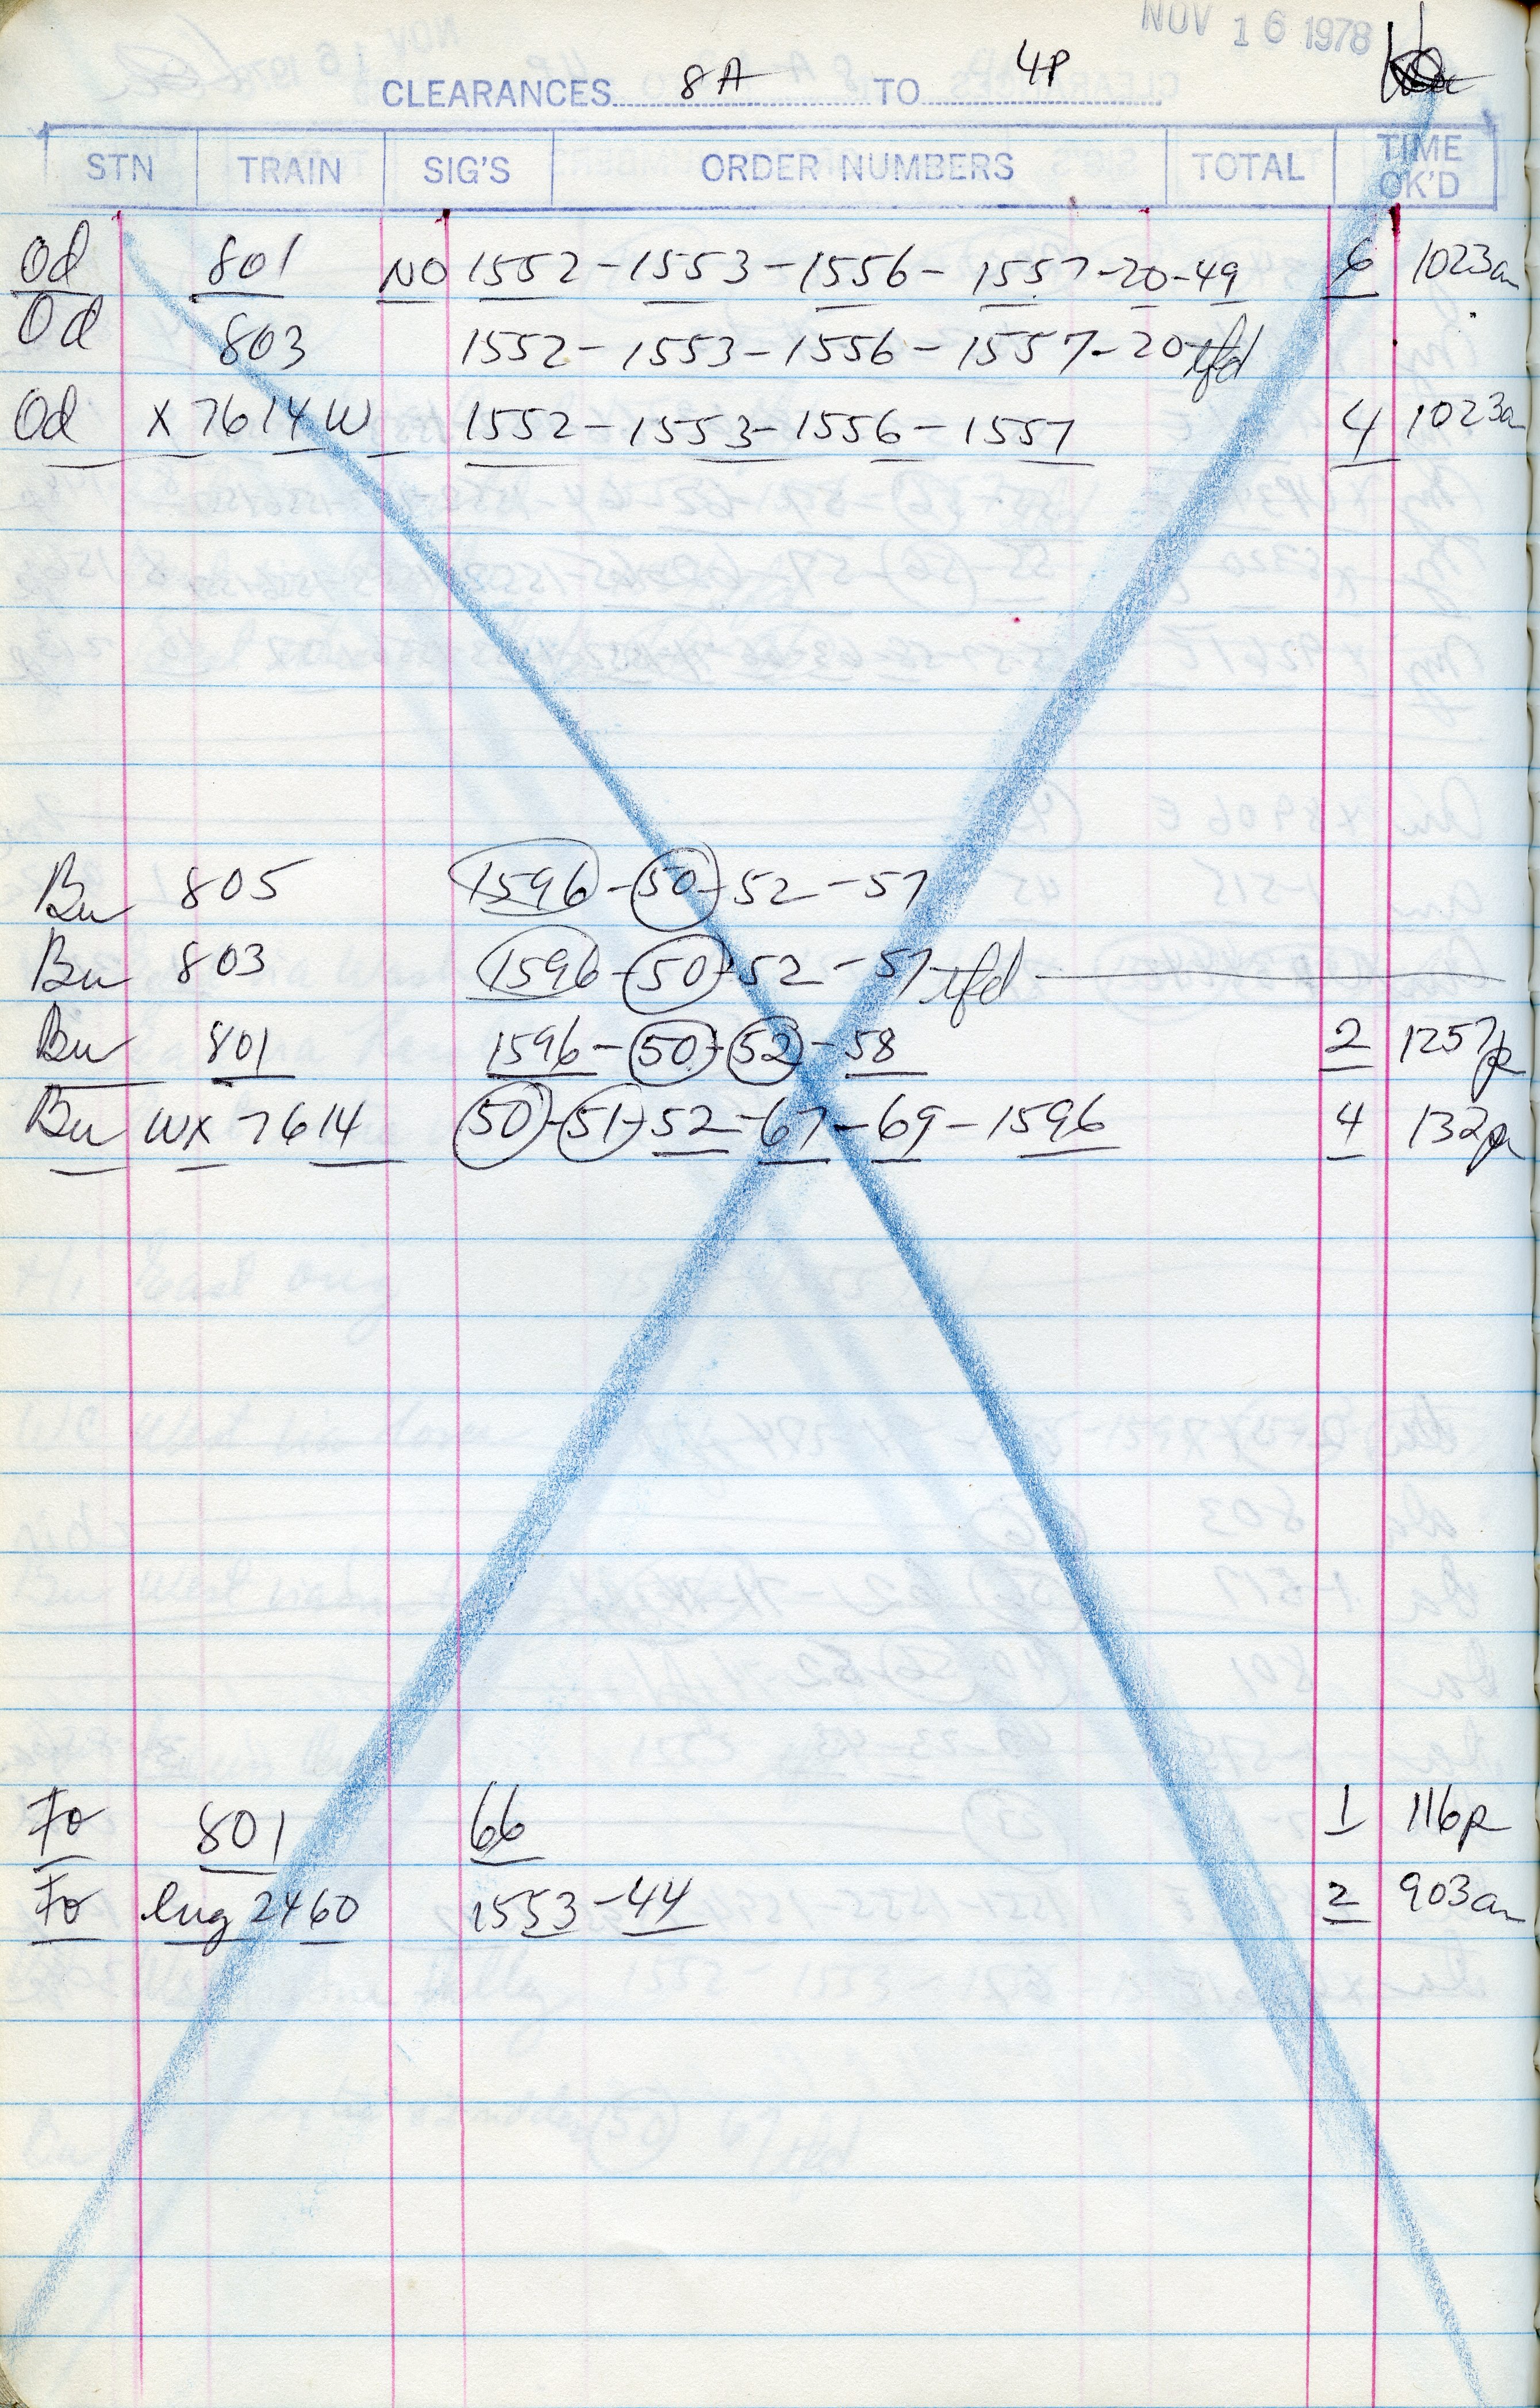 NOV 16 1978
CLEARANCES 8A TO 4P
STN TRAIN SIG'S ORDER NUMBERS TOTAL TIME OK'D
Od 801 NO 1552-1553-1556-1557-20-49 6 1023a
Od 803 1552-1553-1556-1557-20 tfd
Od X 7614 W 1552-1553-1556-1557 4 1023a
Bu 805 1596-50-52-57
Bu 803 1596-50-52-57 tfd
Bu 801 1596-50-52-58 2 1257p
Bu WX 7614 50-51-52-67-69-1596 4 132p
Fo 801 66 1 116p
Fo Eng 2460 1553-44 2 903a